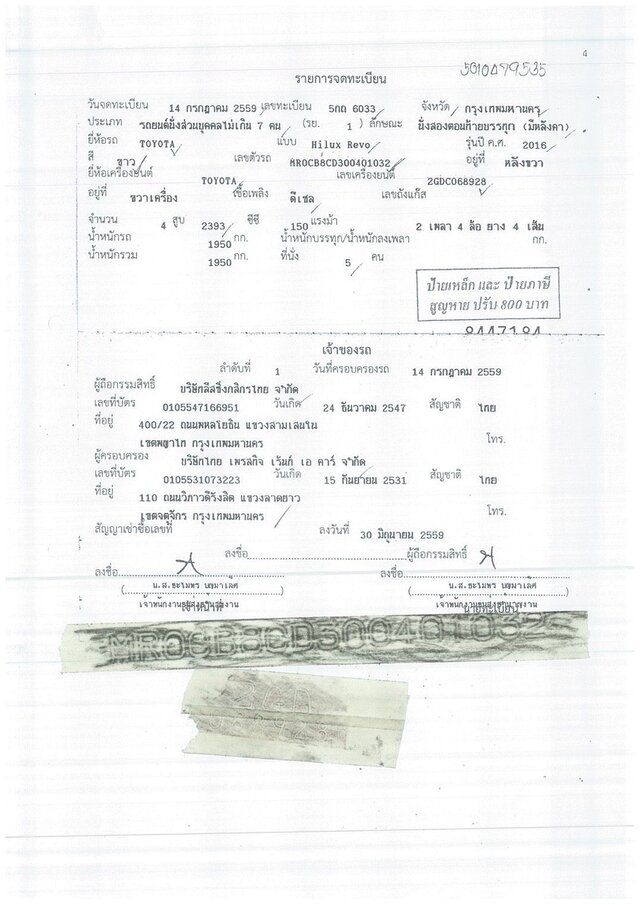 4
5010479535
รายการจดทะเบียน
วันจดทะเบียน 14 กรกฎาคม 2559 เลขทะเบียน 5กถ 6033 จังหวัด กรุงเทพมหานคร
ประเภท รถยนต์นั่งส่วนบุคคลไม่เกิน 7 คน (รย. 1 ) ลักษณะ นั่งสองตอนท้ายบรรทุก (มีหลังคา)
ยี่ห้อรถ TOYOTA แบบ Hilux Revo รุ่นปี ค.ศ. 2016
สี ขาว เลขตัวรถ MR0CB8CD300401032 อยู่ที่ หลังขวา
ยี่ห้อเครื่องยนต์ TOYOTA เลขเครื่องยนต์ 2GDC068928
อยู่ที่ ขวาเครื่อง เชื้อเพลิง ดีเซล เลขถังแก๊ส
จำนวน 4 สูบ 2393 ซีซี 150 แรงม้า 2 เพลา 4 ล้อ ยาง 4 เส้น
น้ำหนักรถ 1950 กก. น้ำหนักบรรทุก/น้ำหนักลงเพลา กก.
น้ำหนักรวม 1950 กก. ที่นั่ง 5 คน
ป้ายเหล็ก และ ป้ายภาษี
สูญหาย ปรับ 800 บาท
8447184
เจ้าของรถ
ลำดับที่ 1 วันที่ครอบครองรถ 14 กรกฎาคม 2559
ผู้ถือกรรมสิทธิ์ บริษัทลีสซิ่งกสิกรไทย จำกัด
เลขที่บัตร 0105547166951 วันเกิด 24 ธันวาคม 2547 สัญชาติ ไทย
ที่อยู่ 400/22 ถนนพหลโยธิน แขวงสามเสนใน
เขตพญาไท กรุงเทพมหานคร โทร.
ผู้ครอบครอง บริษัทไทย เพรสทีจ เร้นท์ เอ คาร์ จำกัด
เลขที่บัตร 0105531073223 วันเกิด 15 กันยายน 2531 สัญชาติ ไทย
ที่อยู่ 110 ถนนวิภาวดีรังสิต แขวงลาดยาว
เขตจตุจักร กรุงเทพมหานคร โทร.
สัญญาเช่าซื้อเลขที่ ลงวันที่ 30 มิถุนายน 2559
ลงชื่อ ผู้ถือกรรมสิทธิ์
ลงชื่อ ลงชื่อ
เจ้าหน้าที่ นายทะเบียน
MR0CB8CD300401032